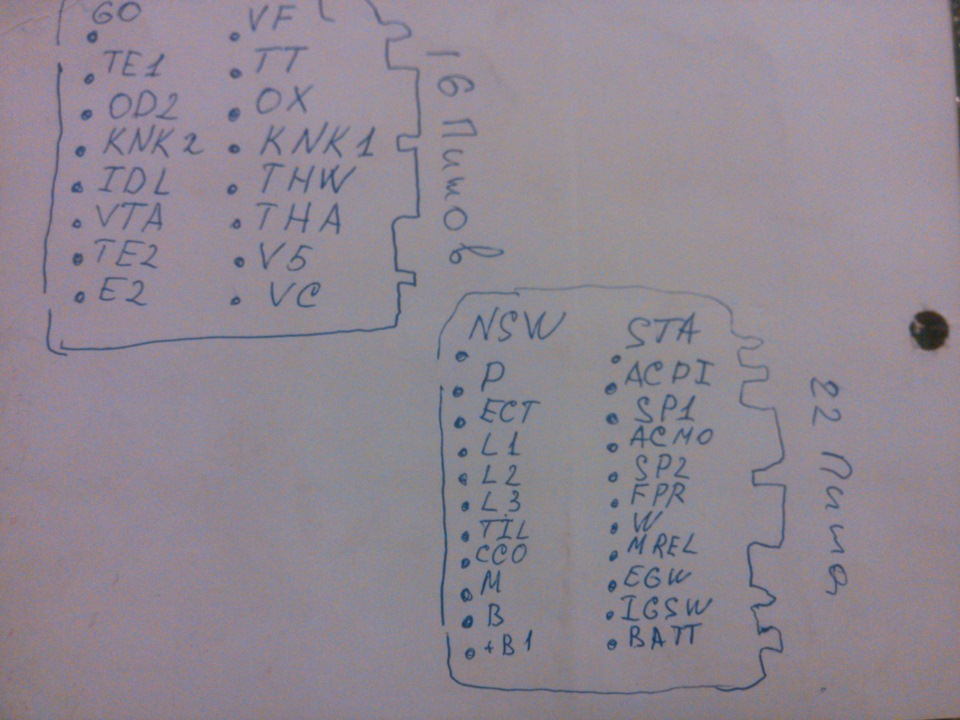 GO VF
TE1 TT
OD2 OX
KNK2 KNK1
IDL THW
VTA THA
TE2 V5
E2 VC
16 Пинов
NSW STA
P ACPI
ECT SP1
L1 ACMO
L2 SP2
L3 FPR
TIL W
CCO MREL
M EGW
B IGSW
+B1 BATT
22 Пина